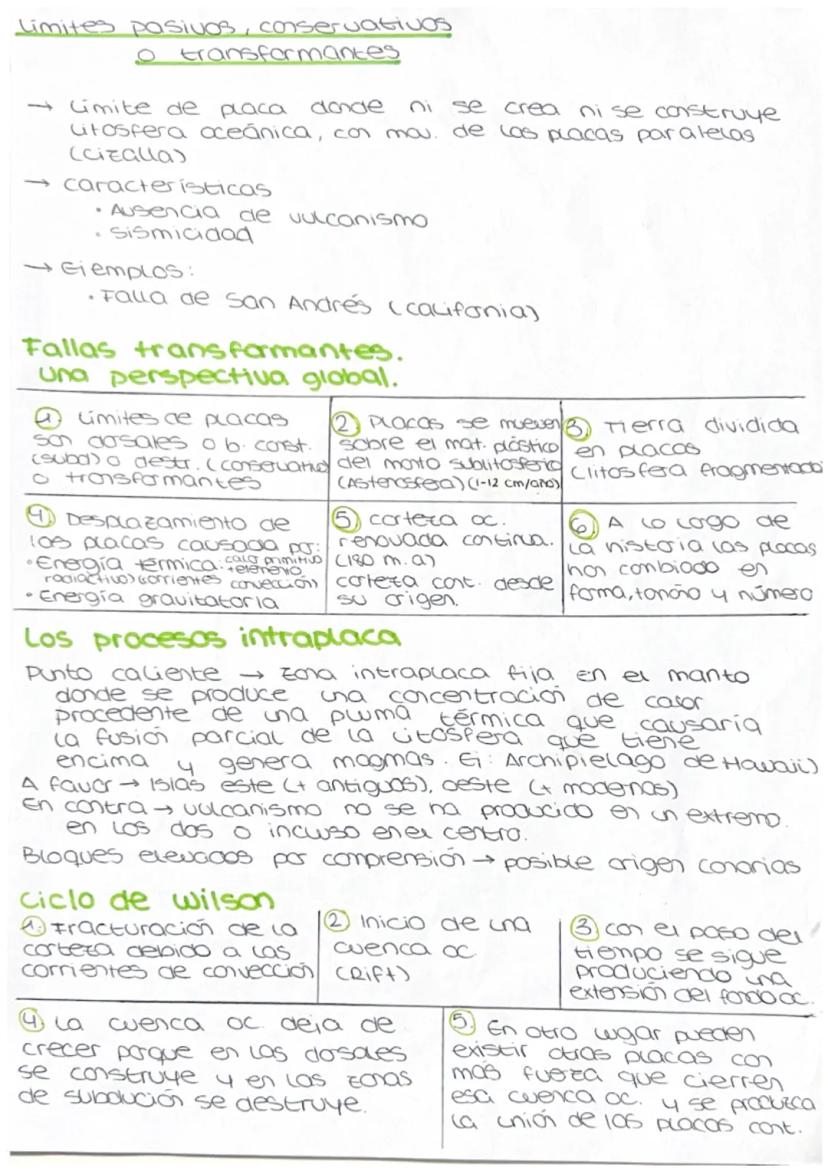 Límites pasivos, conservativos
o transformantes
→ Límite de placa donde ni se crea ni se construye
litosfera oceánica, con mov. de las placas paralelas
(cizalla)
→ características
· Ausencia de vulcanismo
· sismicidad
→ Ejemplos:
· Falla de San Andrés (California)
Fallas transformantes.
Una perspectiva global.
1 Límites de placas
son dorsales o b. const.
(subd) o destr. (conservativo)
o transformantes
2 Placas se mueven
sobre el mat. plástico
del manto sublitosférico
(Astenosfera) (1-12 cm/año)
3 Tierra dividida
en placas
(litosfera fragmentada)
4 Desplazamiento de
las placas causada por:
· Energía térmica: calor primitivo
+ elemento
radiactivo) (corrientes convección)
· Energía gravitatoria
5 corteza oc.
renovada continua.
(180 m.a)
corteza cont. desde
su origen.
6 A lo largo de
la historia las placas
han cambiado en
forma, tamaño y número
Los procesos intraplaca
Punto caliente → zona intraplaca fija en el manto
donde se produce una concentración de calor
procedente de una pluma térmica que causaría
la fusión parcial de la litosfera que tiene
encima y genera magmas. Ej: Archipielago de Hawaii)
A favor → Islas este (+ antiguas), oeste (+ modernas)
En contra → vulcanismo no se ha producido en un extremo.
en los dos o incluso en el centro.
Bloques elevados por comprensión → posible origen canarias
Ciclo de Wilson
1. Fracturación de la
corteza debido a las
corrientes de convección
2 Inicio de una
cuenca oc
(Rift)
3 con el paso del
tiempo se sigue
produciendo una
extensión del fondo oc.
4. La cuenca oc. deja de
crecer porque en las dorsales
se construye y en las zonas
de subdución se destruye.
5. En otro lugar pueden
existir otras placas con
mas fuerza que cierren
esa cuenca oc. y se produzca
la unión de las placas cont.